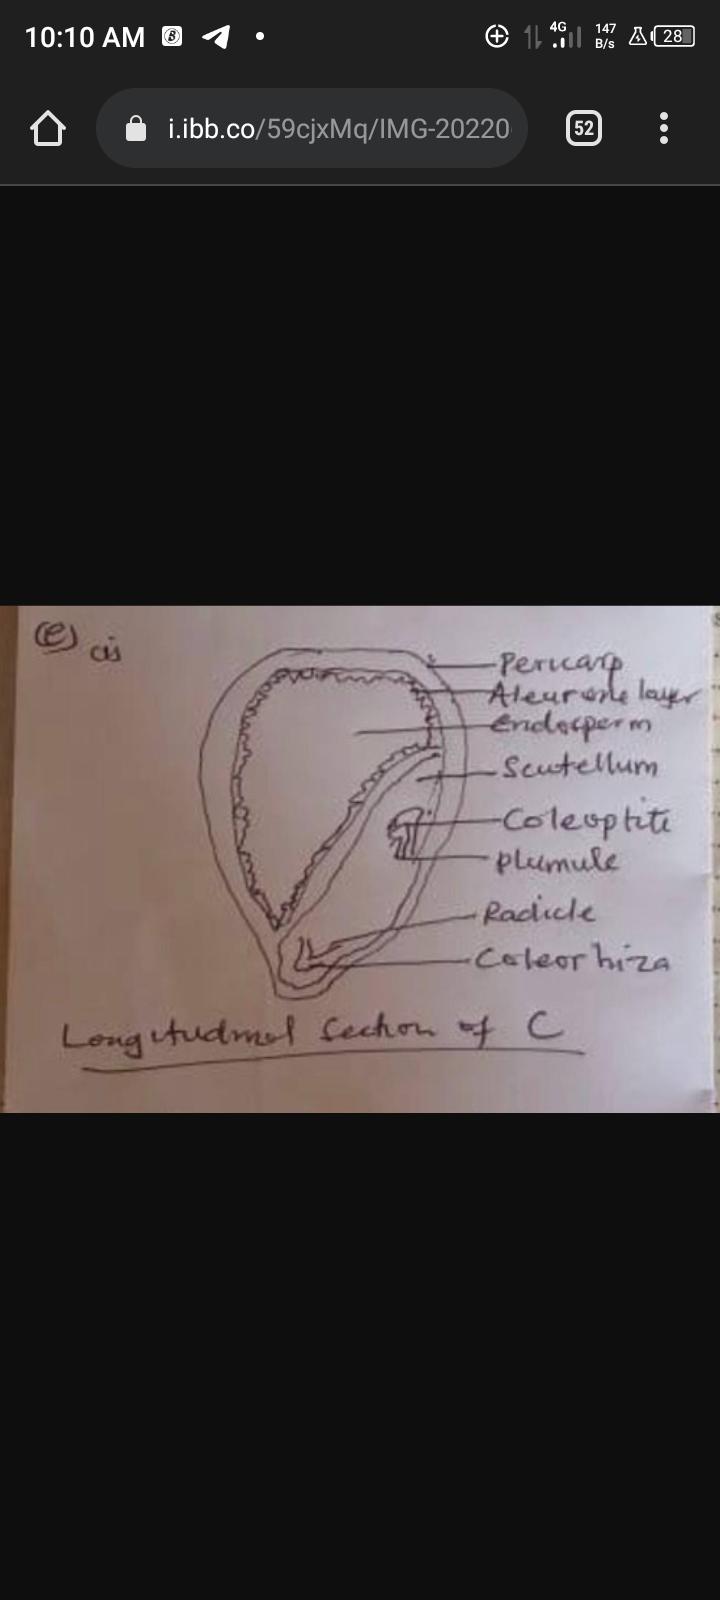 10:10 AM
4G
147
B/s
28
i.ibb.co/59cjxMq/IMG-20220
52
(e) cis
Pericarp
Aleurone layer
Endosperm
Scutellum
Coleoptite
plumule
Radicle
Coleorhiza
Longitudmal Section of C